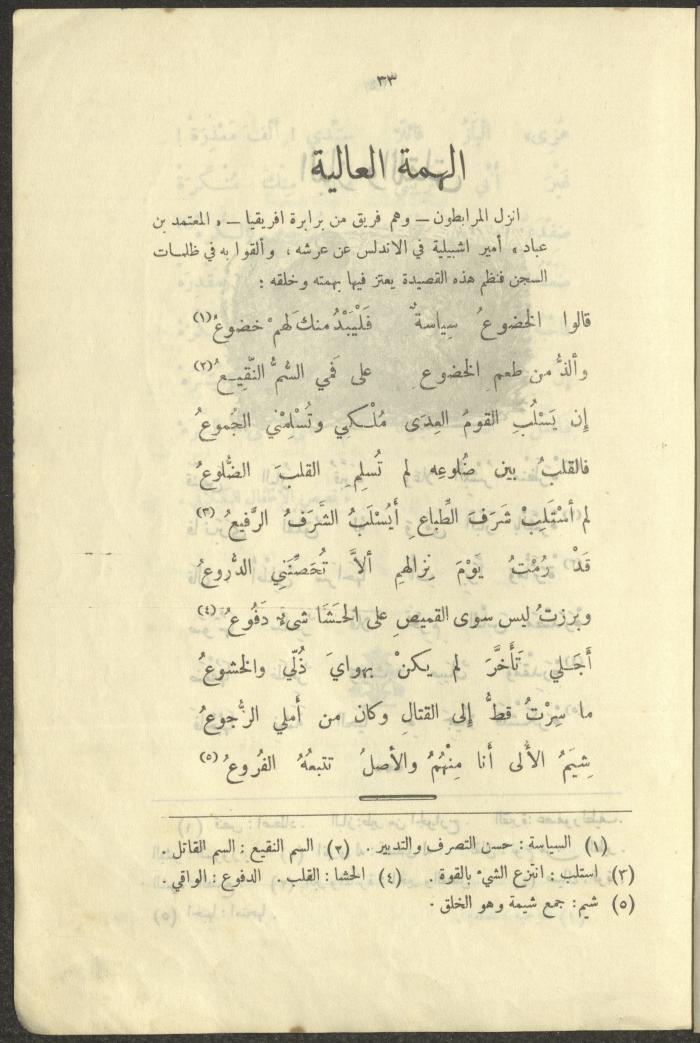 ٣٣
الهمة العالية
انزل المرابطون ــ وهم فريق من برابرة افريقيا ــ « المعتمد بن
عباد » أمير اشبيلية في الاندلس عن عرشه ، وألقوا به في ظلمات
السجن فنظم هذه القصيدة يعتز فيها بهمته وخلقه :
قالوا الخضوعُ سِياسةٌ فَلْيَبْدُ منك لهمْ خضوعُ (١)
وألذُّ من طعمِ الخضوعِ على فَمي السُّمُّ النَّقِيعُ (٢)
إِن يَسْلُبِ القومُ العِدَى مُلْكي وتُسْلِمْني الجُموعُ
فالقلبُ بين ضُلوعِه لم تُسلِمِ القلبَ الضُّلوعُ
لم أُسْتَلِبْ شَرَفَ الطِّباعِ أَيُسْلَبُ الشَّرَفُ الرَّفيعُ (٣)
قَدْ رُمْتُ يَوْمَ نِزالهمِ ألاَّ تُحَصِّنَني الدُّروعُ
وبرزتُ ليس سوى القميصِ على الحَشَا شيءٌ دَفُوعُ (٤)
أَجَلي تَأَخَّرَ لم يكنْ بهوايَ ذُلّي والخشوعُ
ما سِرْتُ قطُّ إلى القتالِ وكان من أملي الرُّجوعُ
شِيَمُ الأُلى أنا مِنْهُمُ والأصلُ تتبعُهُ الفُروعُ (٥)
(١) السياسة : حسن التصرف والتدبير . (٢) السم النقيع : السم القاتل .
(٣) استلب : انتزع الشيء بالقوة . (٤) الحشا : القلب . الدفوع : الواقي .
(٥) شيم : جمع شيمة وهو الخلق .